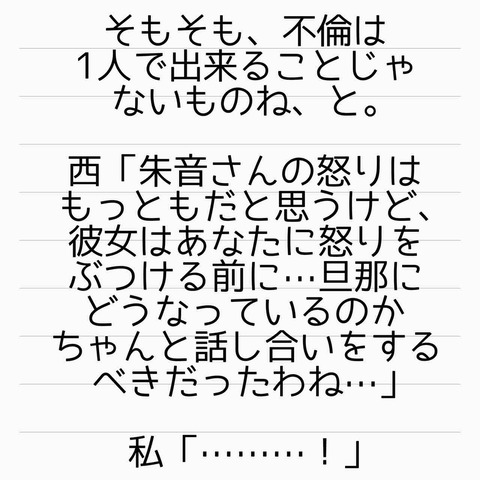 そもそも、不倫は
1人で出来ることじゃ
ないものね、と。
西「朱音さんの怒りは
もっともだと思うけど、
彼女はあなたに怒りを
ぶつける前に…旦那に
どうなっているのか
ちゃんと話し合いをする
べきだったわね…」
私「………！」